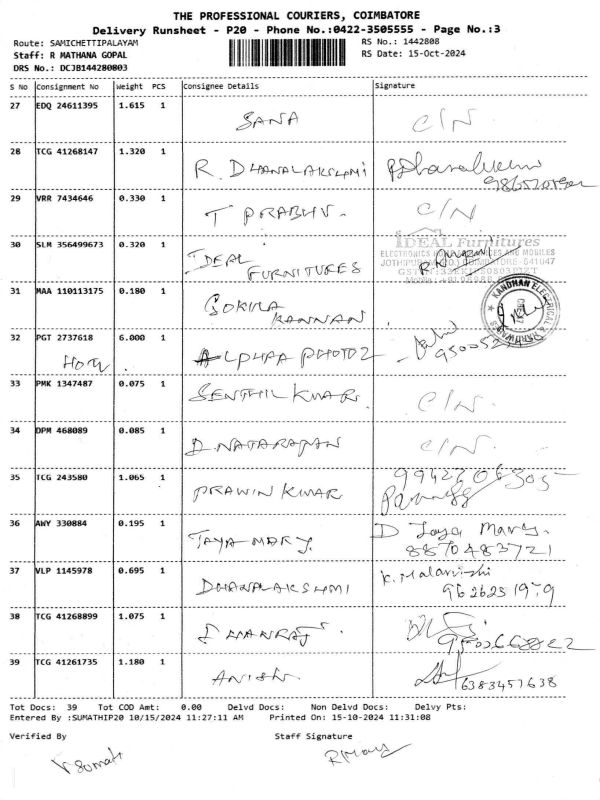 THE PROFESSIONAL COURIERS, COIMBATORE
Delivery Runsheet - P20 - Phone No.:0422-3505555 - Page No.:3
Route: SAMICHETTIPALAYAM
RS No.: 1442808
Staff: R MATHANA GOPAL
RS Date: 15-Oct-2024
DRS No.: DCJB144280803
S No Consignment No Weight PCS Consignee Details Signature
27 EDQ 24611395 1.615 1 SANA C/N
28 TCG 41268147 1.320 1 R. DHANALAKSHMI
29 VRR 7434646 0.330 1 T PRABHU. C/N
IDEAL Furnitures
30 SLM 356499673 0.320 1 IDEAL
FURNITURES
31 MAA 110113175 0.180 1 GOKULA
KANNAN
KANDHAN ELECTRICAL & HARDWARES
32 PGT 2737618 6.000 1 ALPHAA PHOTOZ
33 PMK 1347487 0.075 1 SENTHIL KUMAR. C/N.
34 DPM 468089 0.085 1 D. NATARAJAN C/N.
35 TCG 243580 1.065 1 PRAWIN KUMAR 9942206305
36 AWY 330884 0.195 1 JAYA MARY. D Jaya Mary.
8870483721
37 VLP 1145978 0.695 1 DHANALAKSHMI K. Malarvizhi
9626251979
38 TCG 41268899 1.075 1 DHANRAJ.
39 TCG 41261735 1.180 1 ANISH. 6383457638
Tot Docs: 39 Tot COD Amt: 0.00 Delvd Docs: Non Delvd Docs: Delvy Pts:
Entered By :SUMATHIP20 10/15/2024 11:27:11 AM Printed On: 15-10-2024 11:31:08
Verified By Staff Signature